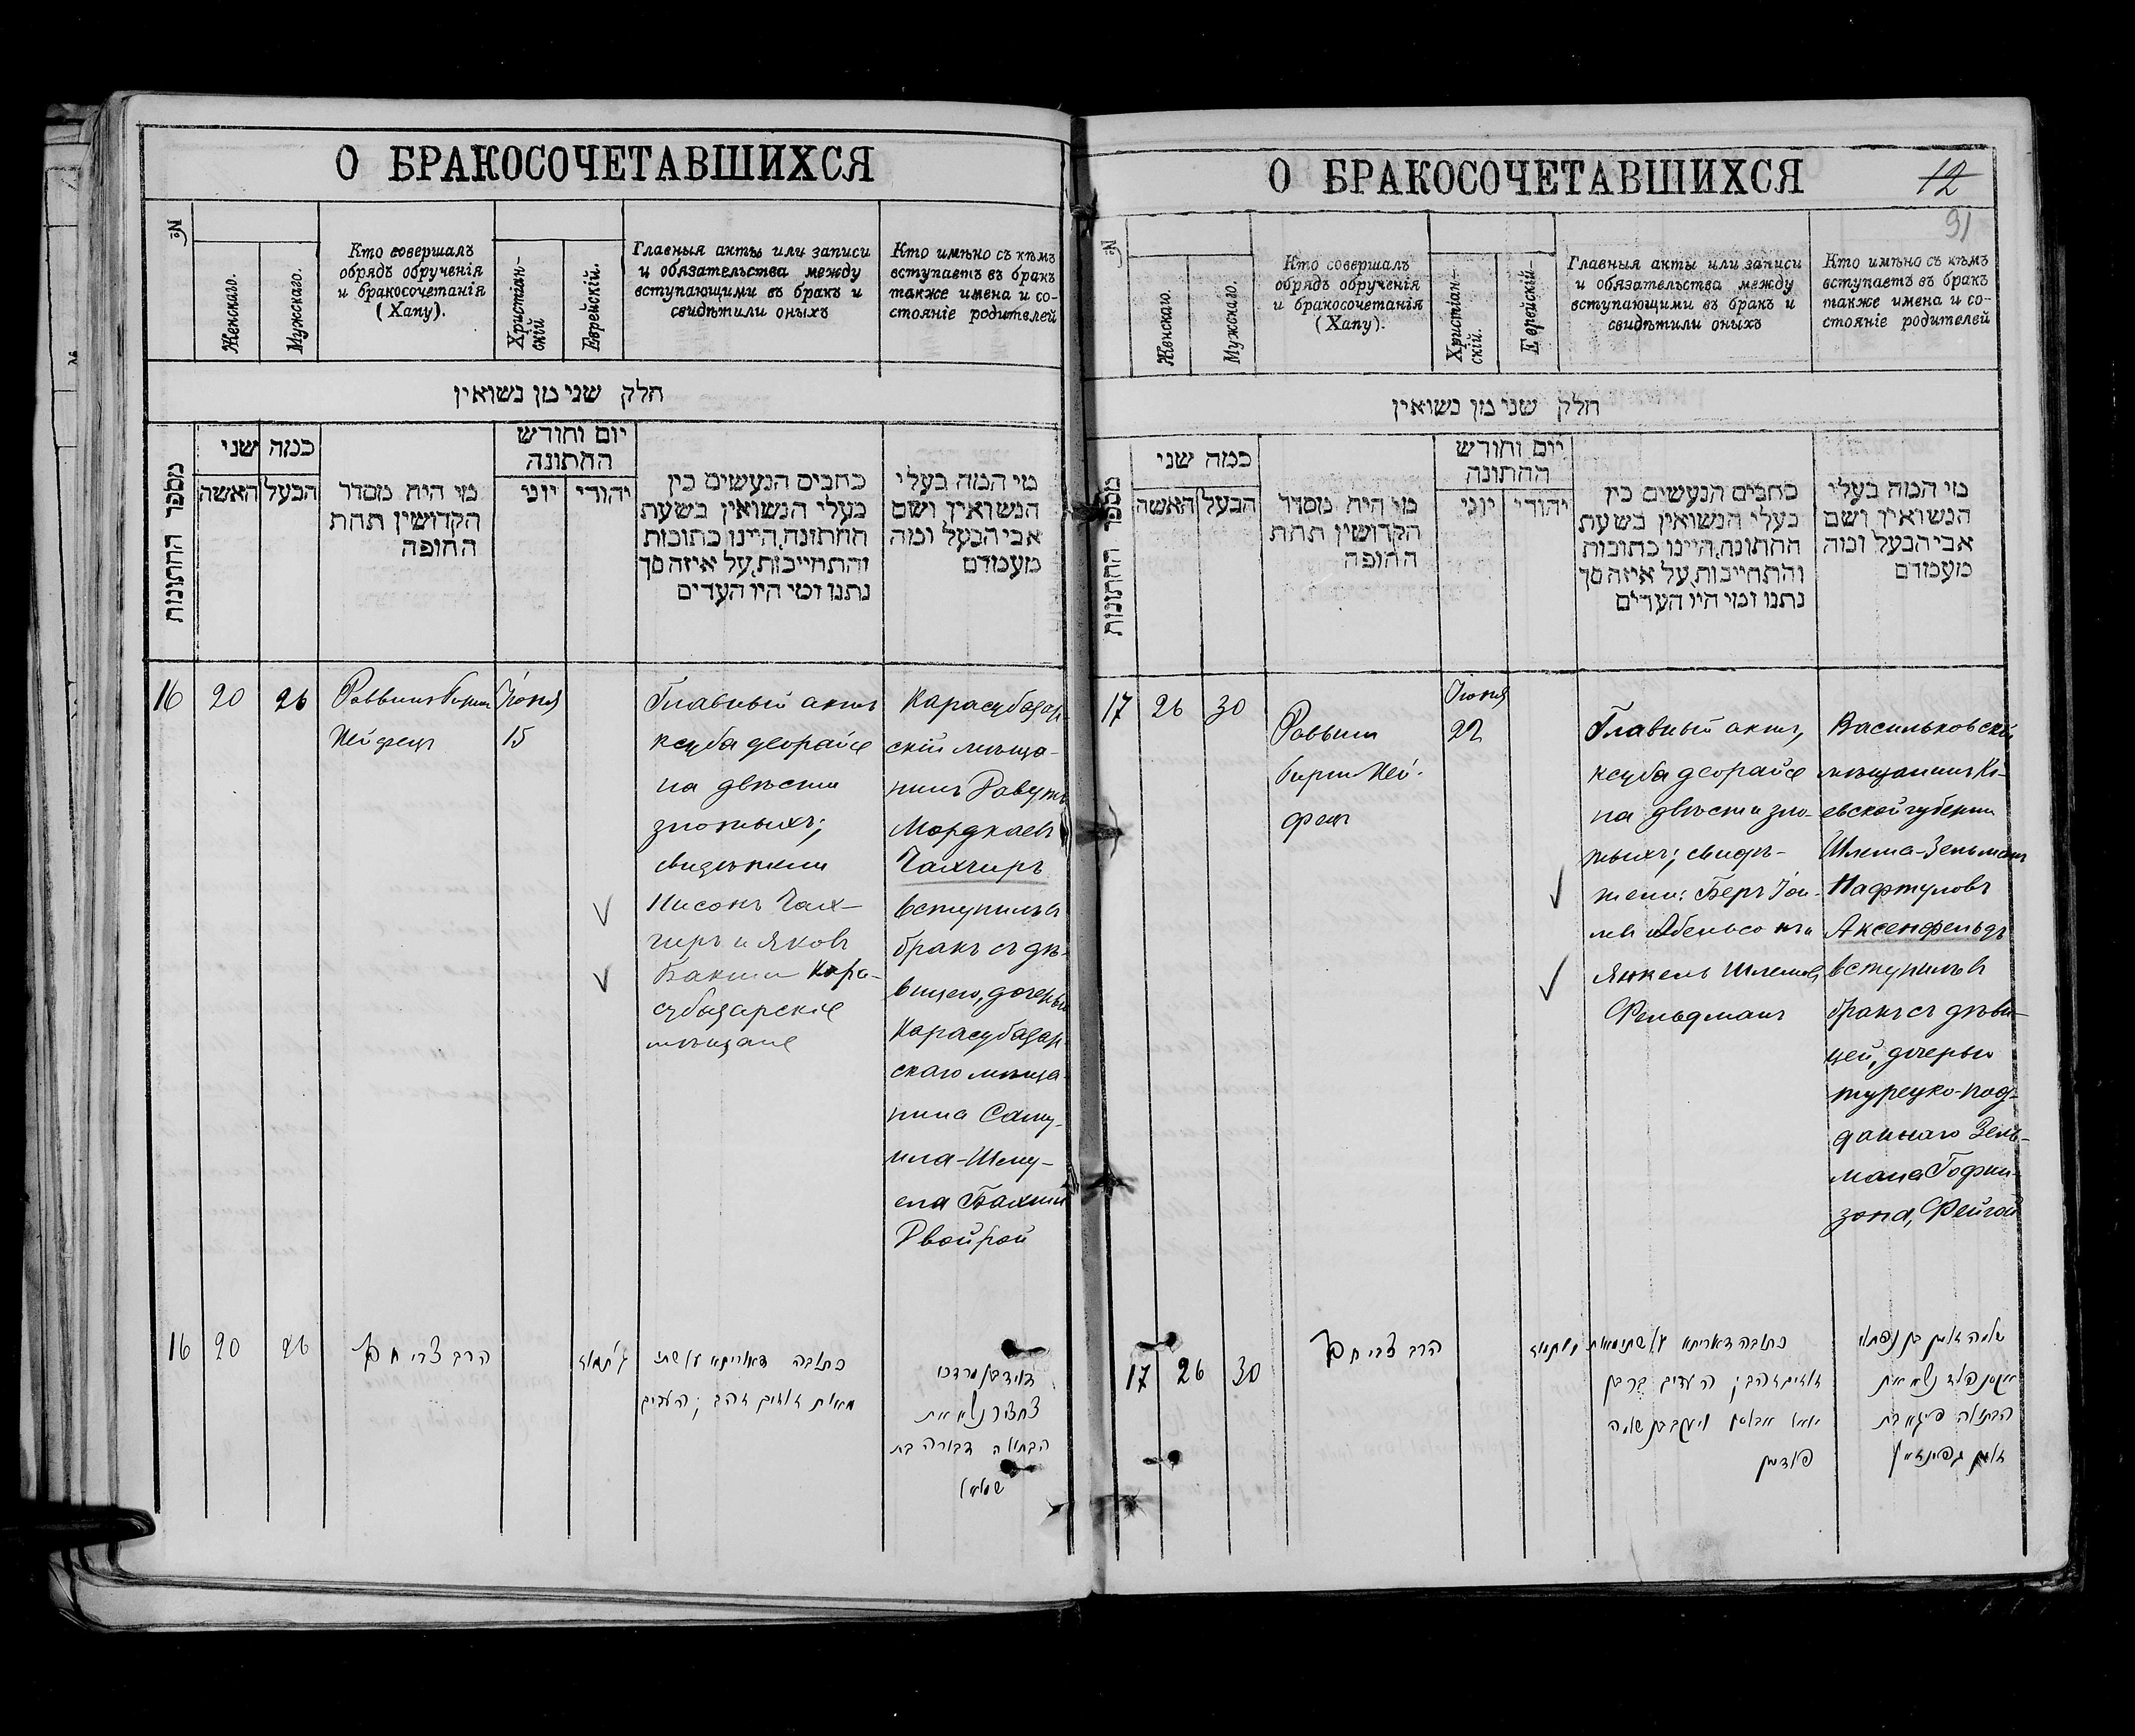 О БРАКОСОЧЕТАВШИХСЯ
№
Женскаго.
Мужскаго.
Кто совершалъ
обрядъ обрученія
и бракосочетанія
(Хапу).
Христіан-
скій
Еврейскій.
Главныя акты или записи
и обязательства между
вступающими въ бракъ и
свидѣтили оныхъ
Кто имѣно съ кѣмъ
вступаетъ въ бракъ
также имена и со-
стояніе родителей
חלק שני מן נשואין
מספר החתונות
כמה שני
האשה
הבעל
מי היה מסדר
הקדושין תחת
החופה
יום וחודש
החתונה
יוני
יהודי
כתבים הנעשים בין
בעלי הנשואין בשעת
החתונה, היינו כתובות
והתחייבות, על איזה סך
נתנו ומי היו העדים
מי המה בעלי
הנשואין ושם
אבי הבעל ומה
מעמדם
16
20
26
Раввинъ
Нейфецъ
Іюня
15
Главный актъ
ксуба деорайсе
на двѣсти
злотыхъ;
свидѣтели
Нисонъ Чах-
чиръ и Яковъ
Бакши Кара-
субазарскіе
мѣщане
Карасубазар-
скій мѣща-
нинъ Давудъ
Мордхаевъ
Чахчиръ
вступилъ въ
бракъ съ дѣ-
вицею, дочерью
Карасубазар-
скаго мѣща-
нина Саму-
ила-Шму-
еля Бакши
Двойрой
16
20
26
הרב צבי
כתובה דאוריתא על שתי
מאות זהובים זהב; העדים
דוד בן מרדכי
נשא את
הבתולה דבורה בת
שמואל
О БРАКОСОЧЕТАВШИХСЯ
12
91
№
Женскаго.
Мужскаго.
Кто совершалъ
обрядъ обрученія
и бракосочетанія
(Хапу).
Христіан-
скій.
Е ерейскій-
Главныя акты или записи
и обязательства между
вступающими въ бракъ и
свидѣтили оныхъ
Кто имѣно съ кѣмъ
вступаетъ въ бракъ
также имена и со-
стояніе родителей
חלק שני מן נשואין
מספר החתונות
כמה שני
האשה
הבעל
מי היה מסדר
הקדושין תחת
החופה
יום וחודש
החתונה
יוני
יהודי
כתבים הנעשים בין
בעלי הנשואין בשעת
החתונה, היינו כתובות
והתחייבות, על איזה סך
נתנו ומי היו העדים
מי המה בעלי
הנשואין ושם
אבי הבעל ומה
מעמדם
17
26
30
Раввинъ
Ней-
фецъ
Іюня
22
Главный актъ,
ксуба деорайсе
на двѣсти зло-
тыхъ; свидѣ-
тели: Беръ
Абельсонъ и
Янкель Шлемовъ
Фельдманъ
Васильковскій
мѣщанинъ Кі-
евской губерніи
Шлема-Зельманъ
Нафтуловъ
Аксенфельдъ
вступилъ въ
бракъ съ дѣви-
цей, дочерью
турецко-под-
даннаго Зель-
мана Гофин-
зона, Фейгой
17
26
30
הרב צבי
כתובה דאוריתא על שתי מאות
זהב; העדים בר בן
ויעקב בן שלמה
פעלדמן
שלמה זלמן בן נפתלי
נשא את
הבתולה פייגא בת
זלמן